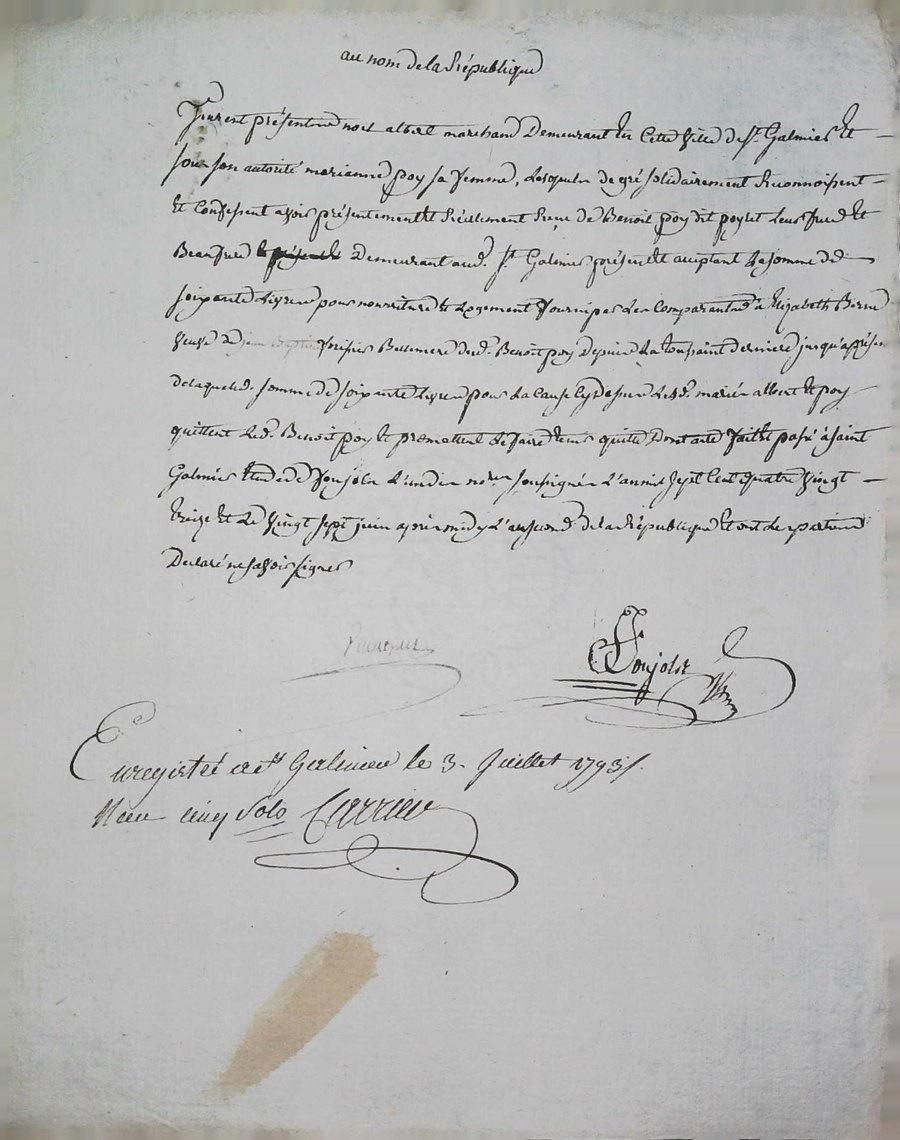 au nom de la République
furent présents noel albert marchand Demeurant En Cette Ville de St. Galmier Et
sous son autorité marianne poy sa femme, Lesquels de gré solidairement Reconnoissent
Et Confessent avoir présentement Et Réellement Reçu de Benoit poy dit poyet Leur frere Et
Beaufrere Demeurant aud. St. Galmier présent Et acceptant La somme de
soixante Livres pour nourriture Et Logement fourni par Les Comparants a Elizabeth
veuve de jean Baptiste Bellemere dud. Benoit poy Depuis La toussaint derniere jusqu'a présent
de laquelle somme de soixante Livres pour La Cause Cydessus Lesd. mariés albert Et poy
quittent Led. Benoit poy Et promettent de faire tenir quitte Dont acte fait Et passé à saint
Galmier Etude de Soujols L'un des nores soussignés L'an mil sept Cent quatre vingt
treize Et Le vingt sept juin apris midy L'an second de la République Et ont Les parties
Declaré ne savoir signer
Soujols
Enregistré a St Galmier le 3. Juillet 1793.
Reçu cinq sols Carrier